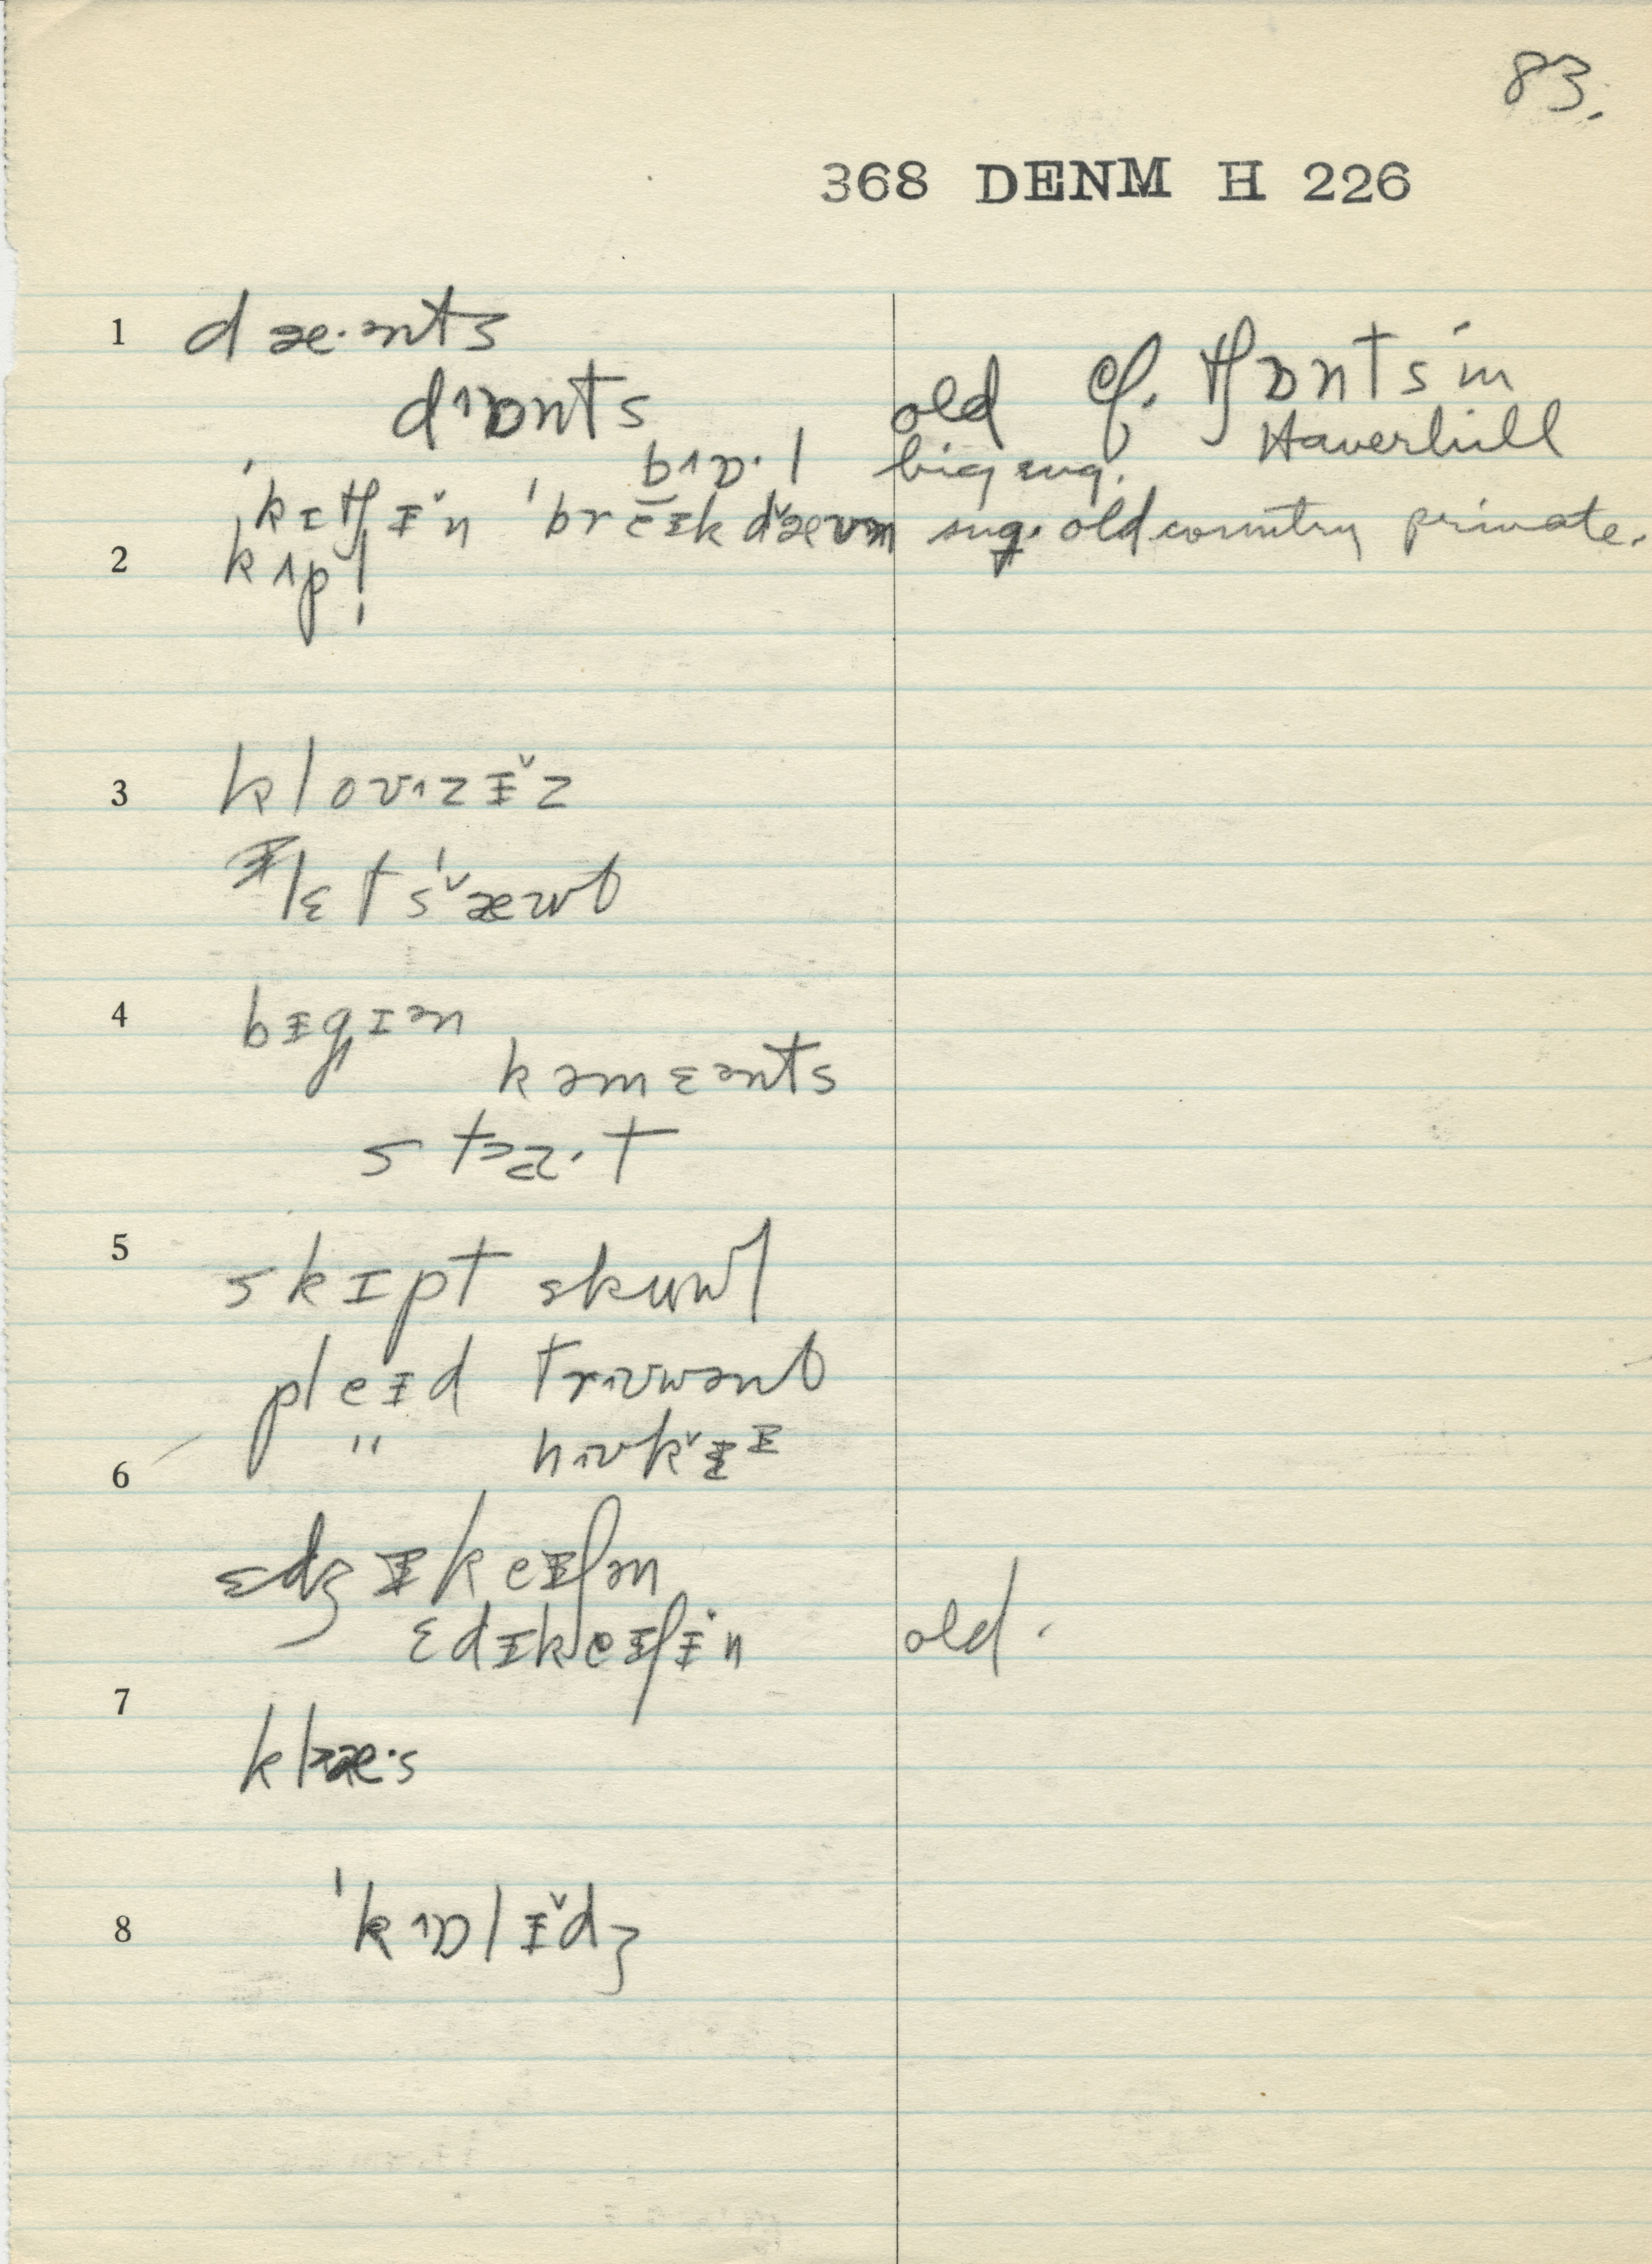 83.
368 DENM H 226
1 dæ·ənts
dɒnts old cf. tʃɒnts in Haverhill
bɒ·l big sug.
ˈkɪtʃɨ̌n ˈbreɨkdæʊn sug. old country private.
2 kʌp!
3 kloʊzɨ̌z
lɛtsˈæʊt
4 bɨgɪən
kəmɛənts
staˑt
5 skɪpt skuwl
pleɨd trʊwənt
" hʊkɨ
6
ɛdʒɨkeɨʃən
ɛdɨkeɨʃɨn old.
7
klæ·s
8 ˈkɒlɨ̌dʒ